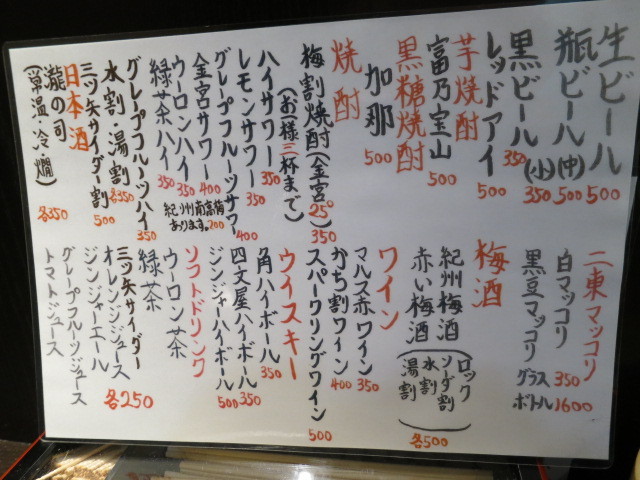 生ビール 500
瓶ビール(中) 500
黒ビール(小) 350
350
レッドアイ 500
芋焼酎
富乃宝山 500
黒糖焼酎
加那 500
焼酎
梅割焼酎(金宮25° 350
(お一様三杯まで)
ハイサワー 350
レモンサワー 350
グレープフルーツサワー 400
金宮サワー 400
ウーロンハイ 350
緑茶ハイ 350
紀州南高梅あります。200
グレープフルーツハイ 350
水割 湯割 各350
三ツ矢サイダー割 500
日本酒
瀧の司
(常温 冷 燗) 各350
二東マッコリ
白マッコリ
黒豆マッコリ
グラス 350
ボトル 1600
梅酒
紀州梅酒
赤い梅酒
(ロック
ソーダ割
水割
湯割) 各500
ワイン
マルス赤ワイン 350
かち割ワイン 400
スパーワリングワイン 500
ウイスキー
角ハイボール 350
四文屋ハイボール 350
ジンジャーハイボール 500
ソフトドリンク
ウーロン茶
緑茶
三ッ矢サイダー
オレンジジュース
ジンジャーエール
グレープフルーツジュース
トマトジュース
各250